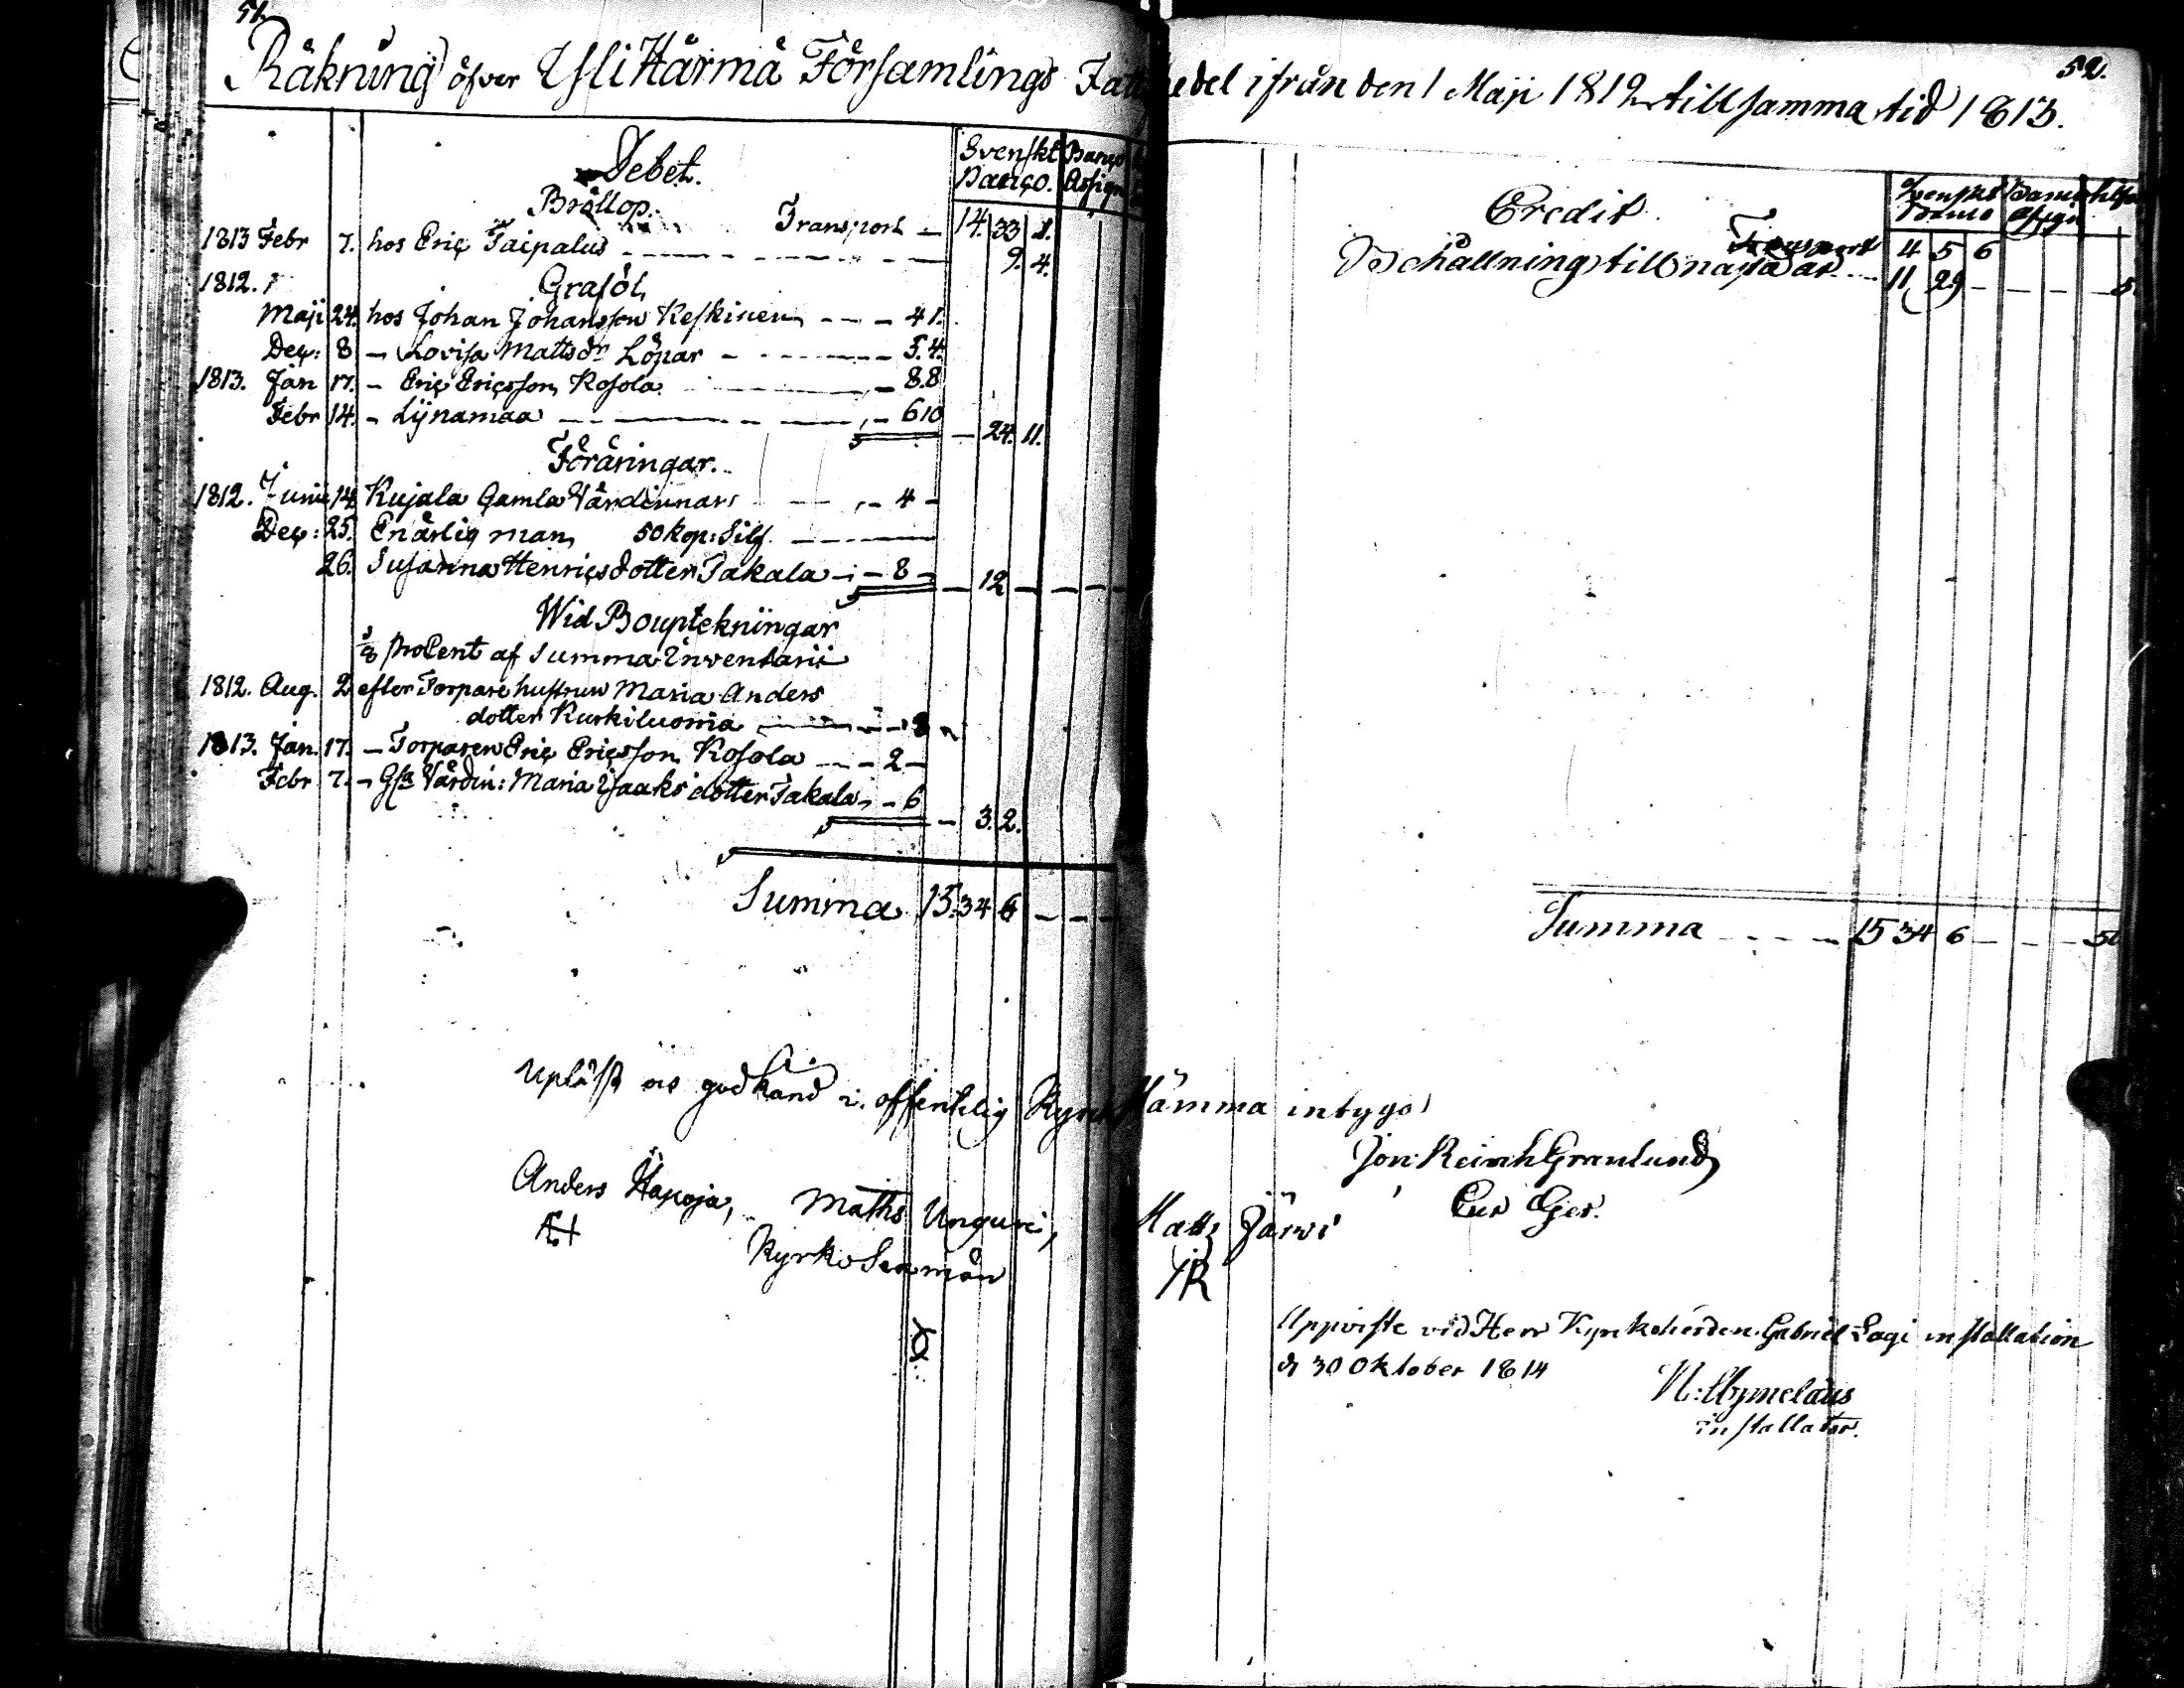 51.
52.
Räkning öfver YliHärmä Församlings Fattmedel ifrån den 1 Maji 1812 till samma tid 1813.
Debet. Svenskt Banço. Banço Assign
Bröllop. Transport — 14. 33 1.
1813 Febr 7. hos Eriç Taipalus — 9. 4.
1812. Graföl
Maji 24. hos Johan Johansson Keskinen — 4 1.
Deç: 8 — Lovisa Mattsdr Löpar — 5.4.
1813. Jan 17. — Eriç Ericsson Kosola — 8.8
Febr 14. — Lijnamaa — 6 10 — 24. 11.
Föräringar.
1812. Junii 14 Kujala Gamla Värdinnan — 4 —
Deç: 25. En ärlig man 50 kop: Silf. —
26. Susanna Henriçsdotter Takala — 8 — 12 —
Wid Bouptekningar
1/8 proCent af Summa Inventarii
1812. Aug. 2 efter Torpare hustrun Maria Anders
dotter Kurkiluoma — 8
1813. Jan. 17. — Torparen Eriç Ericsson Kosola — 2 —
Febr 7. — Gla Värdin: Maria Isaaksdotter Takala — 6
— 3. 2.
Summa 15. 34 6 — — —
Credit Svenskt Banco Banco Assign
Transport 4 5 6
Behållning till nästa år 11 29 —
Summa — 15 34 6 — — — 50
Upläst och godkänd i offentelig Kyrkstämma intygar
Jon: Reinh Granlund
Cur Ger.
Anders Hapoja, Maths Unguri, Matts Järvi
Kyrko Sexmän
Uppviste vid Herr Kyrkoherden Gabriel Lagi installation
d 30 Oktober 1814
N: Aymelæus
installator.